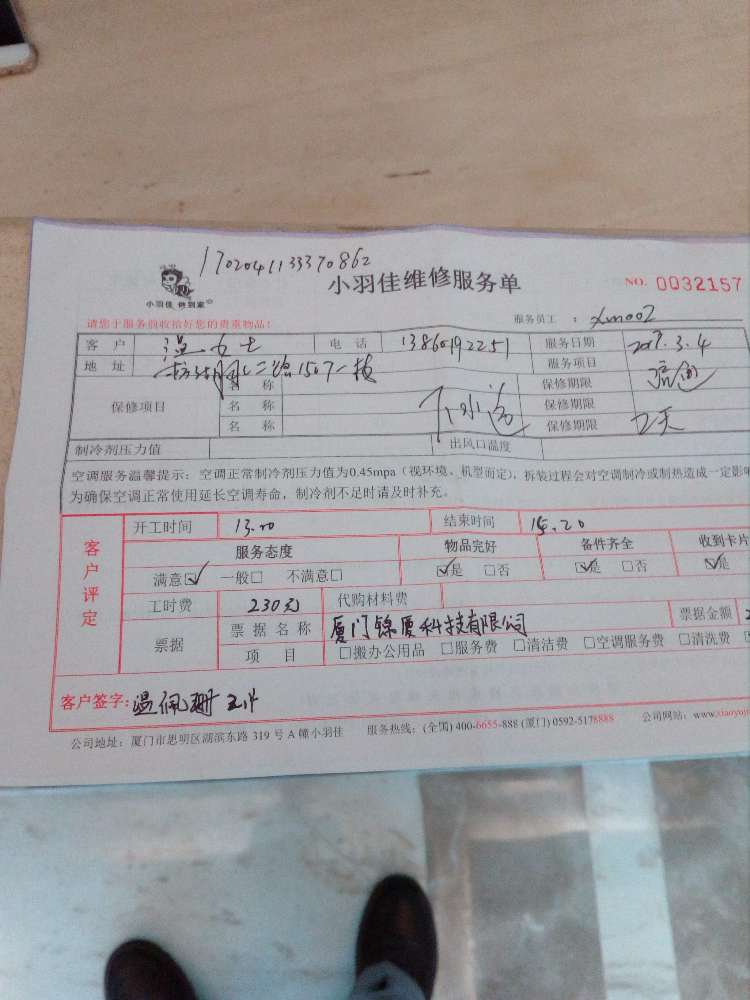 170204133370862
小羽佳维修服务单
NO. 0032157
小羽佳 到家
请您于服务前收拾好您的贵重物品!
服务员工 : xm002
客户 温女士 电话 13860192251 服务日期 2017.3.4
地址 1507 服务项目
名称 保修期限
保修项目 名称 保修期限
名称 保修期限
制冷剂压力值 出风口温度
空调服务温馨提示: 空调正常制冷剂压力值为0.45mpa (视环境、机型而定), 拆装过程会对空调制冷或制热造成一定影响
为确保空调正常使用延长空调寿命, 制冷剂不足时请及时补充。
客户评定
开工时间 13.20 结束时间 15.20
服务态度 物品完好 备件齐全 收到卡片
满意☑ 一般□ 不满意□ ☑是 □否 ☑是 □否 ☑是
工时费 230元 代购材料费
票据 票据名称 厦门锦厦科技有限公司 票据金额
项目 □搬办公用品 □服务费 □清洁费 □空调服务费 □清洗费
客户签字: 温佩珊
公司地址: 厦门市思明区湖滨东路 319 号 A 幢小羽佳 服务热线: (全国) 400-6655-888 (厦门) 0592-5178888 公司网站: www.xiaoyuj